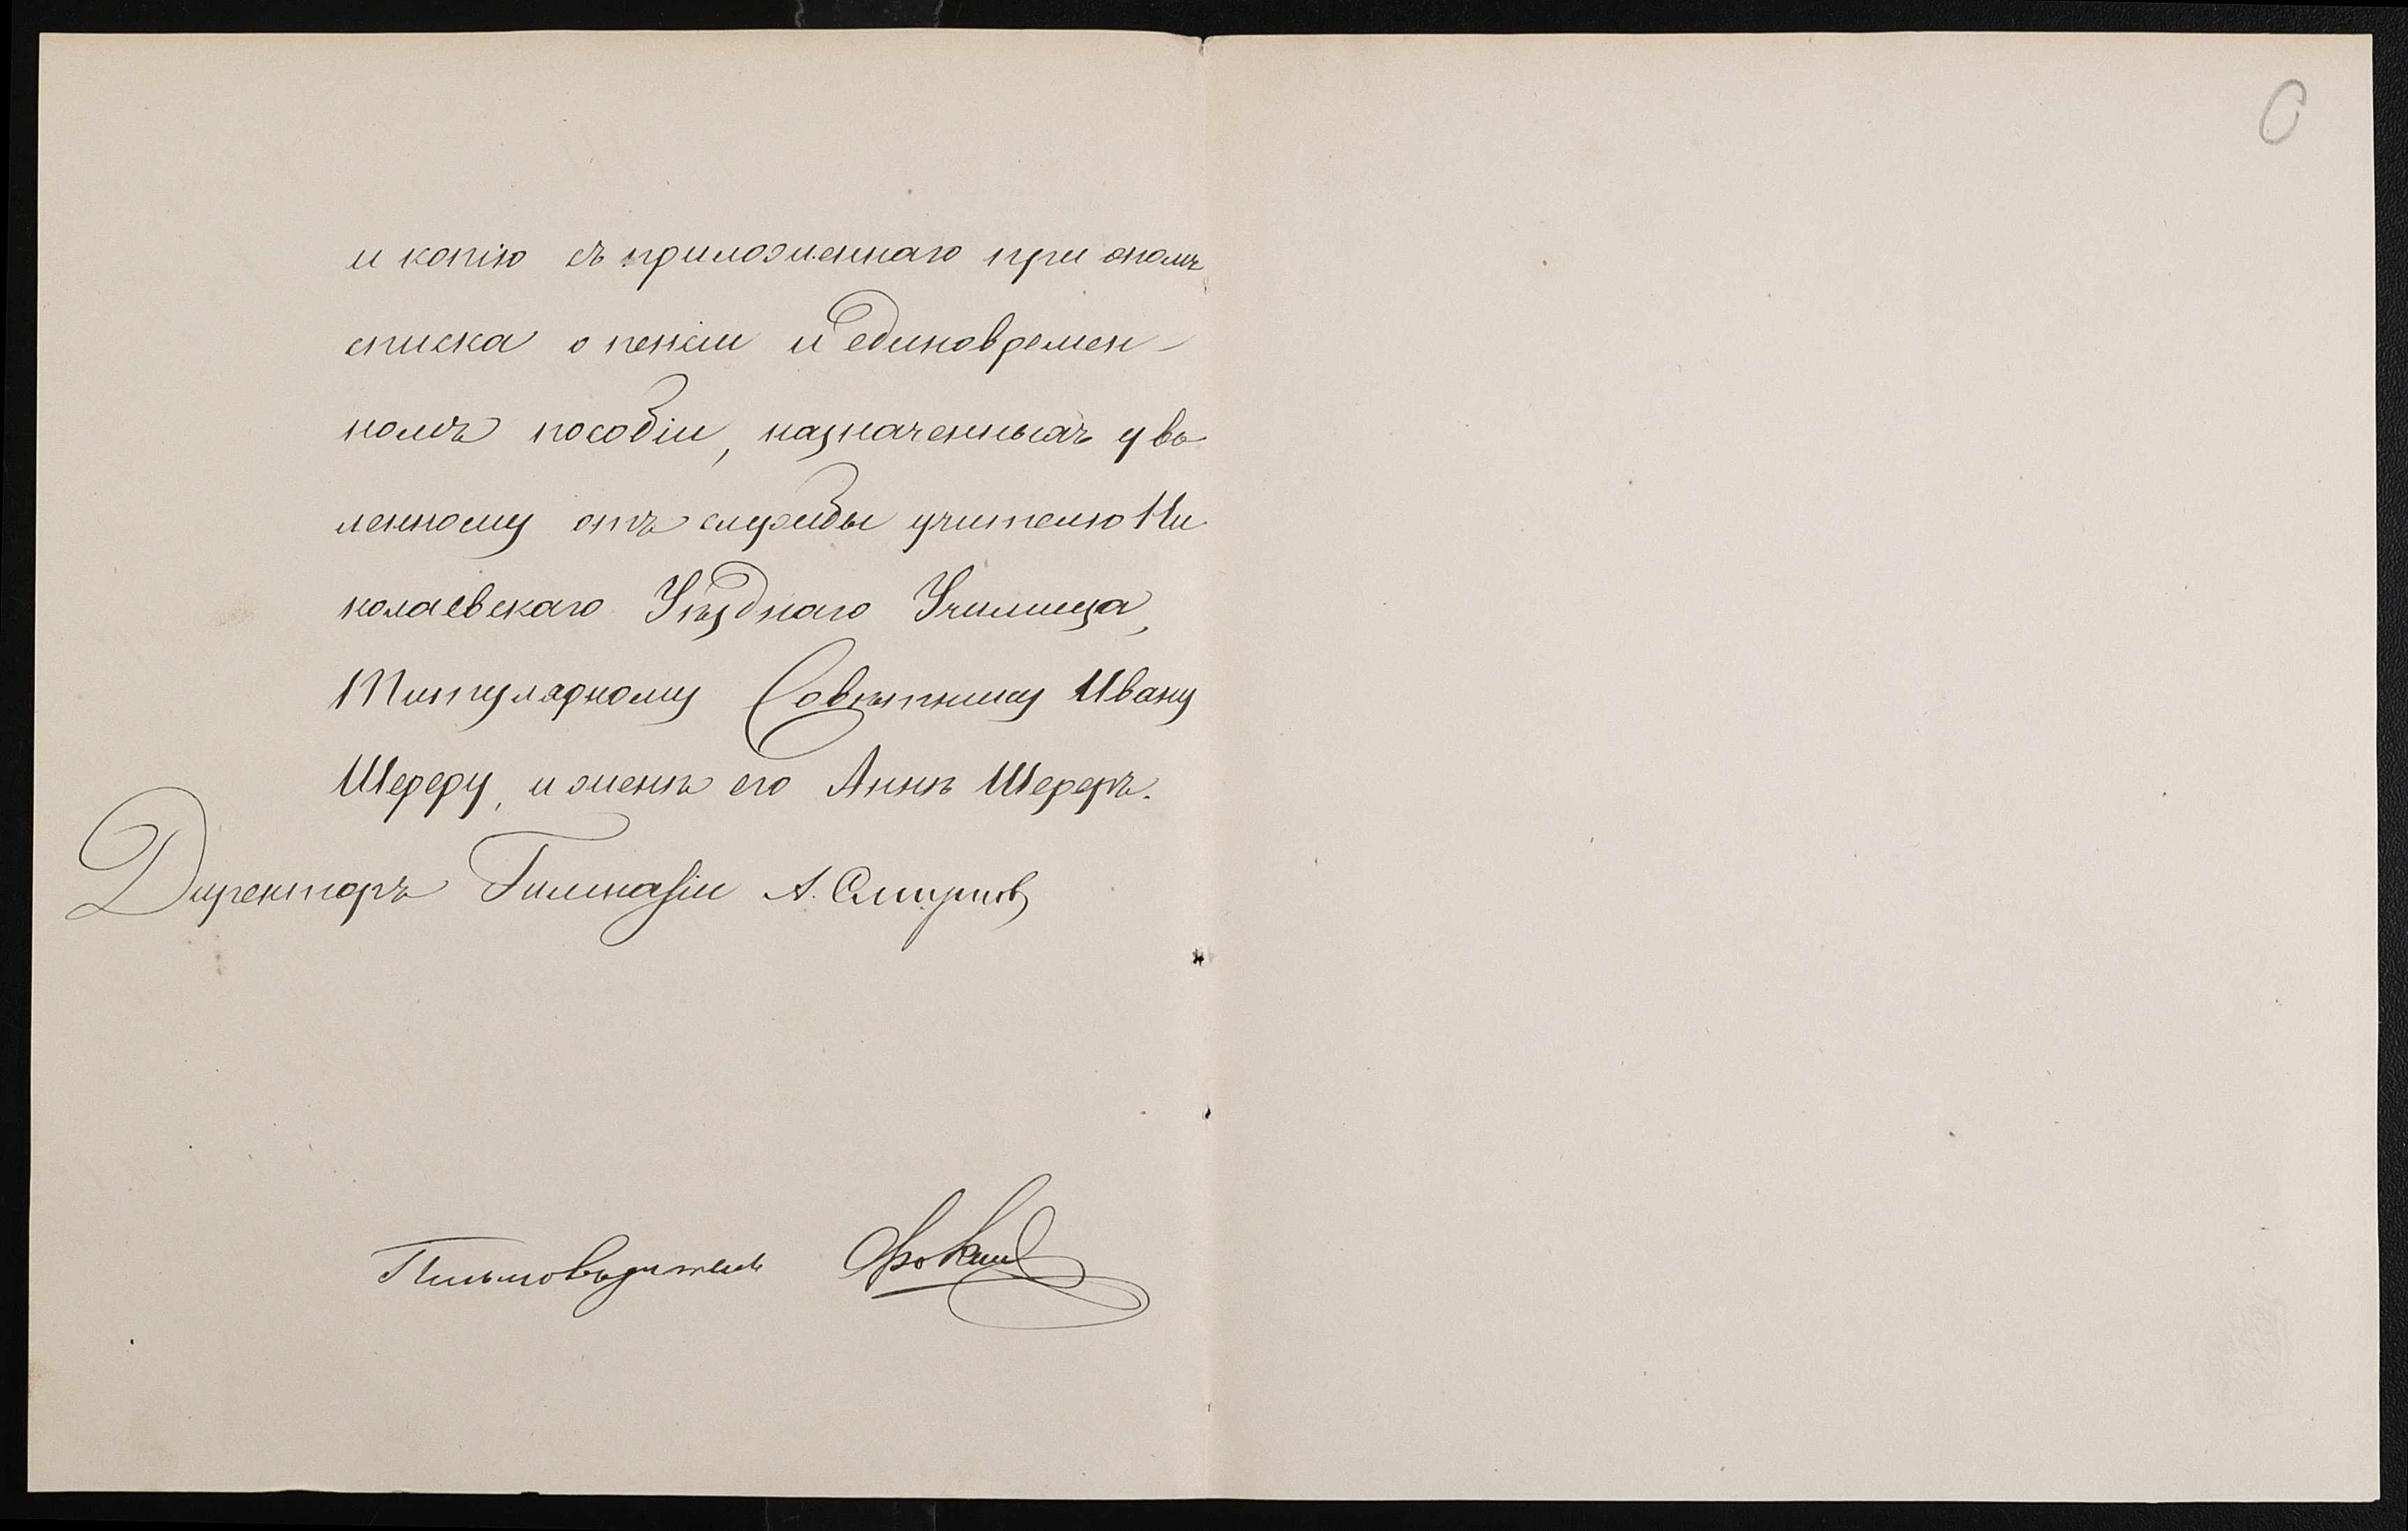 и копію съ приложеннаго при ономъ
списка о пенсіи и единовремен-
номъ пособіи, назначенныхъ уво-
ленному отъ службы учителю Ни-
колаевскаго Уѣзднаго Училища,
Титулярному Совѣтнику Ивану
Шереру, и женѣ его Аннѣ Шереръ.
Директоръ Гимназіи А. Смирнов
Письмоводитель Фокинъ